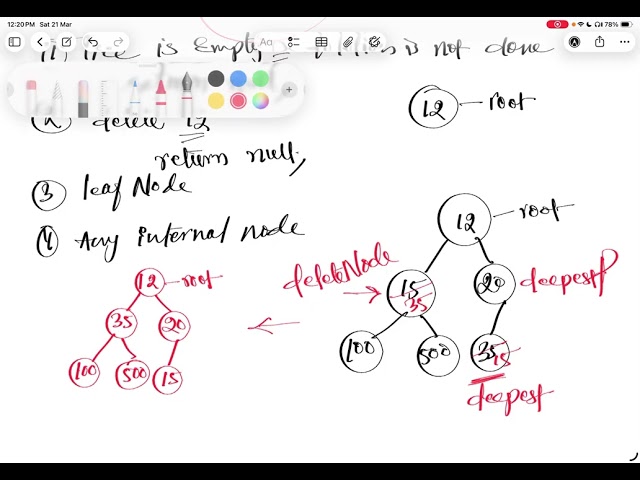 12:20 PM Sat 21 Mar
78%
Aa
is Empty is not done
12 root
(2) delete 12
return null,
(3) leaf Node
(4) Any internal node
12 root
deleteNode
15 35
20 deepestP
100 500 35 15
deepest
12 root
35 20
100 500 15